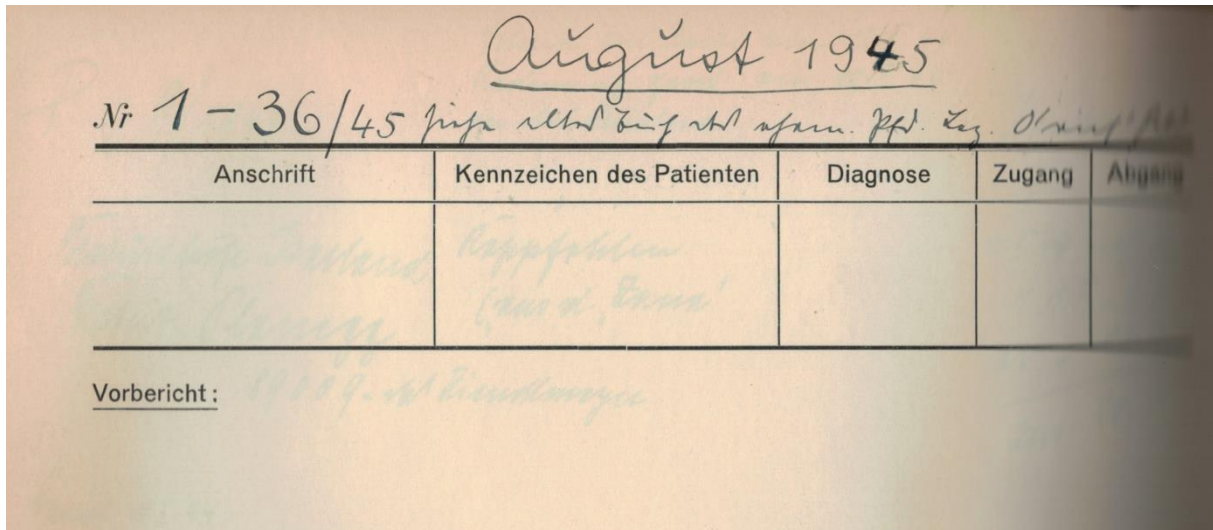 August 1945
Nr 1-36/45 siehe altes Buch des ehem. Pfd. Laz.
Anschrift Kennzeichen des Patienten Diagnose Zugang Abgang
Vorbericht: